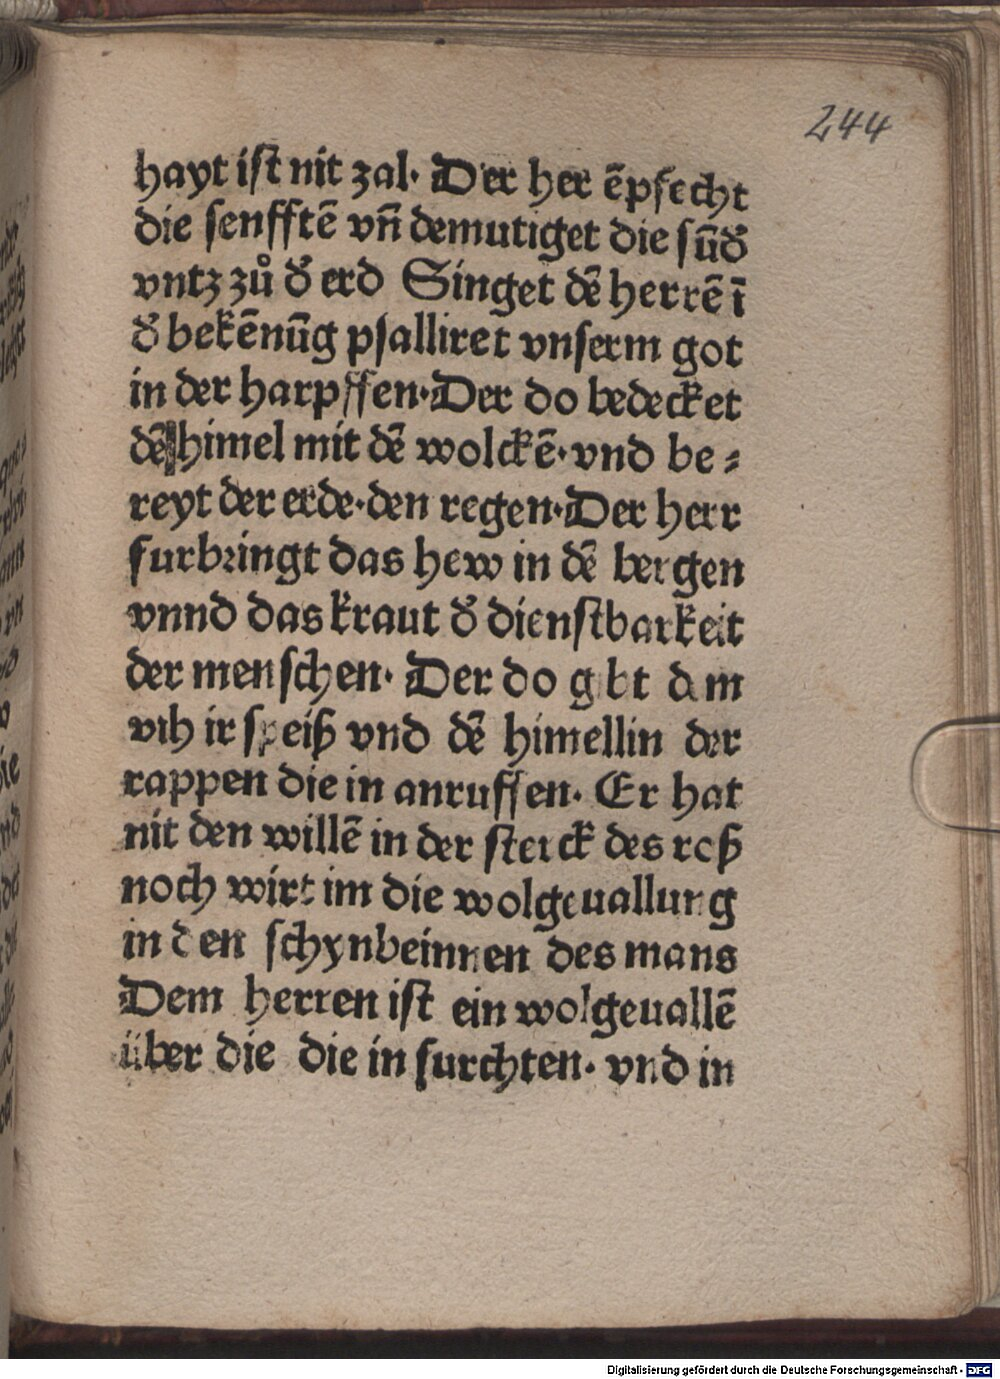 244
hayt ist nit zal· Der her ēpfecht
die senfftē vn̄ demutiget die sūd̛
vntz zů d̛ erd Singet dē herrē ī
d̛ bekēnūg psalliret vnserm got
in der harpffen·Der do bedecket
dē himel mit dē wolckē·vnd be⸗
reyt der erde·den regen·Der herr
furbringt das hew in dē bergen
vnnd das kraut d̛ dienstbarkeit
der menschen· Der do gibt dem
vih ir speiß vnd dē himellin der
rappen die in anruffen· Er hat
nit den willē in der sterck des roß
noch wirt im die wolgeuallung
in den schynbeinnen des mans
Dem herren ist ein wolgeuallē
über die die in furchten· vnd in
Digitalisierung gefördert durch die Deutsche Forschungsgemeinschaft - DFG